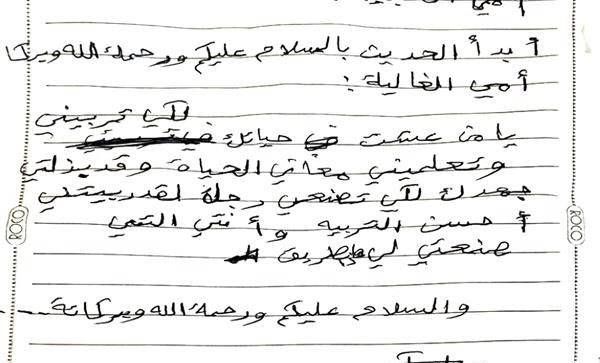 أبدأ الحديث بالسلام عليكم ورحمة الله وبركا
أمي الغالية :
لكي تربيني
يا من عشت في حياتك
وتعلميني معاني الحياة وقد بذلتي
جهدك لكي تصنعي رجلا لقد ربيتني
أحسن التربيه وأنتي التي
صنعتي لي طريق
والسلام عليكم ورحمة الله وبركاتة
ROCO
ROCO